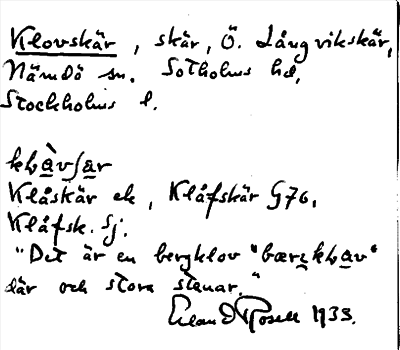 Klovskär, skär, Ö. Långvikskär,
Nämdö sn. Sotholms hd,
Stockholms l.
klo̲àvʃa̲r
Klåskär ek, Klåfskär G76,
Klåfsk. Sj.
"Det är en bergklov "
där och stora stenar."
Erland Rosell 1933.